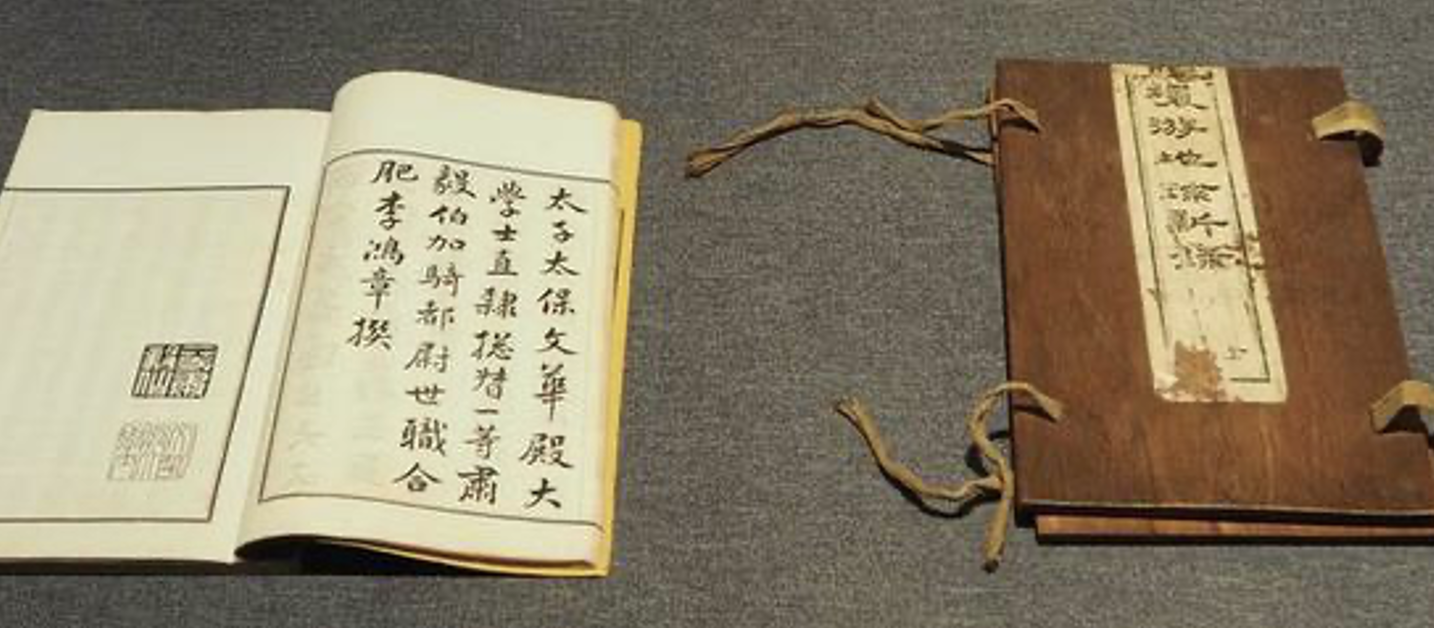 太子太保文華殿大
學士直隸捴督一等肅
毅伯加騎都尉世職合
肥李鴻章撰
環游地球新錄